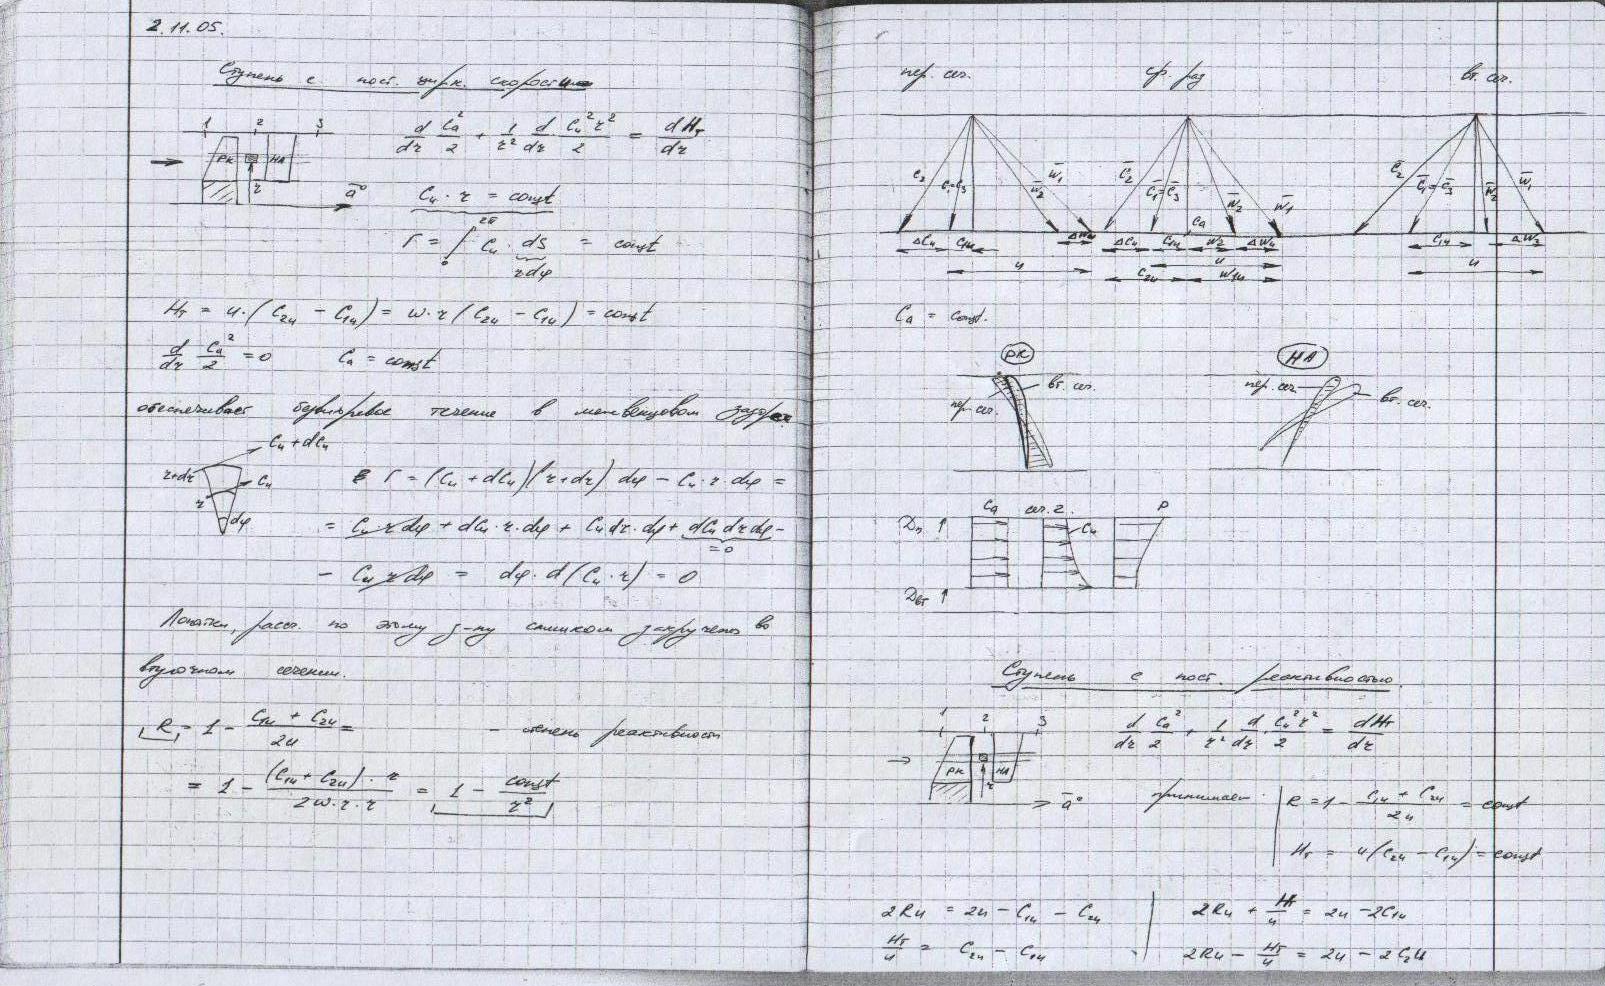 2.11.05.
Ступень с пост. цирк. скоростью
1 2 3
РК НА
r
a°
d/dr Ca²/2 + 1/r² d/dr Cu² r²/2 = dHт/dr
Cu · r = const
Г = ∫₀^2π Cu · dS = const
rdφ
Hт = u · (C2u − C1u) = ω · r (C2u − C1u) = const
d/dr Ca²/2 = 0 Ca = const
обеспечивает безвихревое течение в межвенцовом зазоре
Cu + dCu
r+dr Cu
r
dφ
Г = (Cu + dCu)(r+dr) dφ − Cu · r · dφ =
= Cu · r dφ + dCu · r · dφ + Cu dr · dφ + dCu dr dφ −
= 0
− Cu r dφ = dφ · d(Cu · r) = 0
Лопатки, расч. по этому з-ну слишком закручены во
втулочном сечении.
R = 1 − (C1u + C2u)/2u = − степень реактивности
= 1 − (C1u + C2u) · r/2ω · r · r = 1 − const/r²
пер. сеч. ср. рад вт. сеч.
C2 C1=C3 W2 W1
C2 C1=C3 Ca W2 W1
C2 C1=C3 W2 W1
ΔCu C1u ΔWu ΔCu C1u W2 ΔWu C1u ΔW2
u u u
C2u W1u
Ca = const.
РК НА
вт. сеч. пер. сеч.
пер. сеч. вт. сеч.
Ca сеч. 2. P
Dп Cu
Dвт
Ступень с пост. реактивностью.
1 2 3
РК НА
r
a°
d/dr Ca²/2 + 1/r² d/dr · Cu² r²/2 = dHт/dr
принимаем: R = 1 − (C1u + C2u)/2u = const
Hт = u(C2u − C1u) = const
2Ru = 2u − C1u − C2u
Hт/u = C2u − C1u
2Ru + Hт/u = 2u − 2C1u
2Ru − Hт/u = 2u − 2C2u